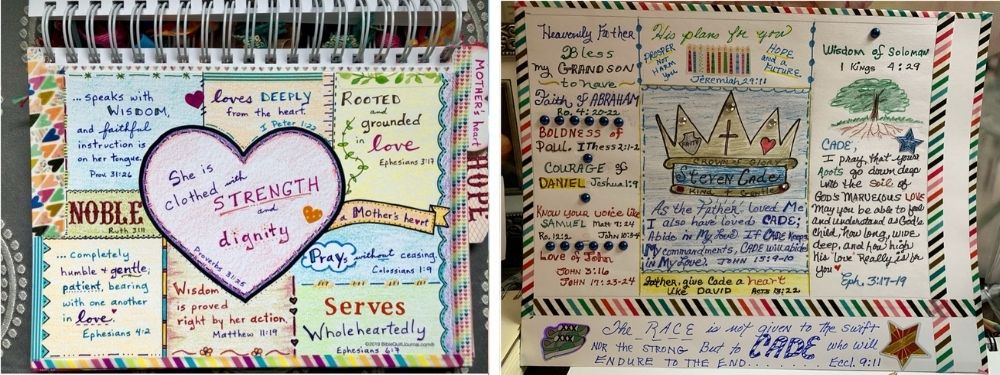 ... speaks with
WISDOM,
and faithful
instruction is
on her tongue.
Prov. 31:26
loves DEEPLY
from the heart.
1 Peter 1:22
ROOTED
and
grounded
in love
Ephesians 3:17
MOTHER'S heart
HOPE
She is
clothed with
STRENGTH
and
dignity
Proverbs 31:25
NOBLE
Ruth 3:11
a Mother's heart
... completely
humble & gentle;
patient, bearing
with one another
in love.
Ephesians 4:2
Wisdom
is proved
right by her action.
Matthew 11:19
Pray without ceasing.
Colossians 1:9
Serves
Wholeheartedly
Ephesians 6:7
©2019 BibleQuiltJournal.com®
Heavenly Father
Bless
my GRANDSON
to have
Faith of ABRAHAM
Ro. 4:20-22
BOLDNESS of
Paul. I Thess 2:1-2
COURAGE of
DANIEL Joshua 1:9
Know your voice like
SAMUEL Matt 4:24
Ro. 12:2
Love of John
JOHN 3:16
JOHN 17:23-24
His plans for you
PROSPER
NOT
HARM
YOU
HOPE
and a
FUTURE
Jeremiah 29:11
CROWN of GLORY
Steven Cade
Kind Gentle
As the Father loved Me
I also have loved CADE;
Abide in My love. If CADE keeps
My commandments, CADE will abide
in My Love! JOHN 15:9-10
Father, give Cade a heart
like DAVID Acts 13:22
Wisdom of Soloman
1 Kings 4:29
CADE,
I pray, that your
Roots go down deep
into the soil of
God's MARVELOUS LOVE
May you be able to feel
and understand as God's
Child, how long, wide
deep, and how high
His love Really is for
you
Eph. 3:17-19
XXX
The RACE is not given to the swift
NOR the STRONG But to CADE who will
ENDURE TO the END....... Eccl. 9:11